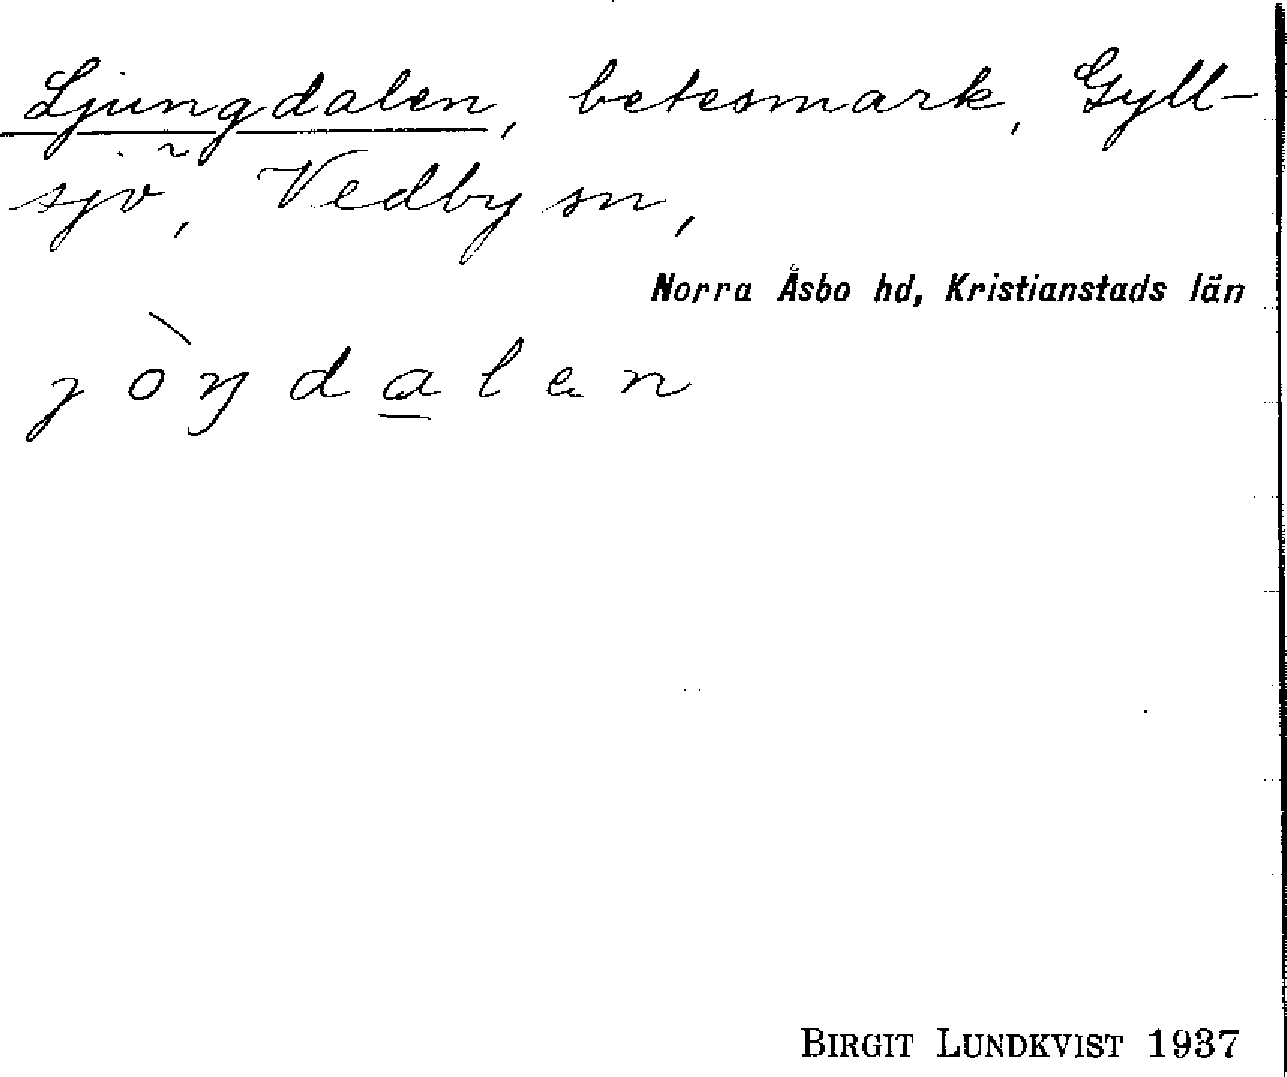 Ljungdalen, betesmark, Gyll-
sjö, Vedby sn,
Norra Åsbo hd, Kristianstads län
jòŋdalen
BIRGIT LUNDKVIST 1937